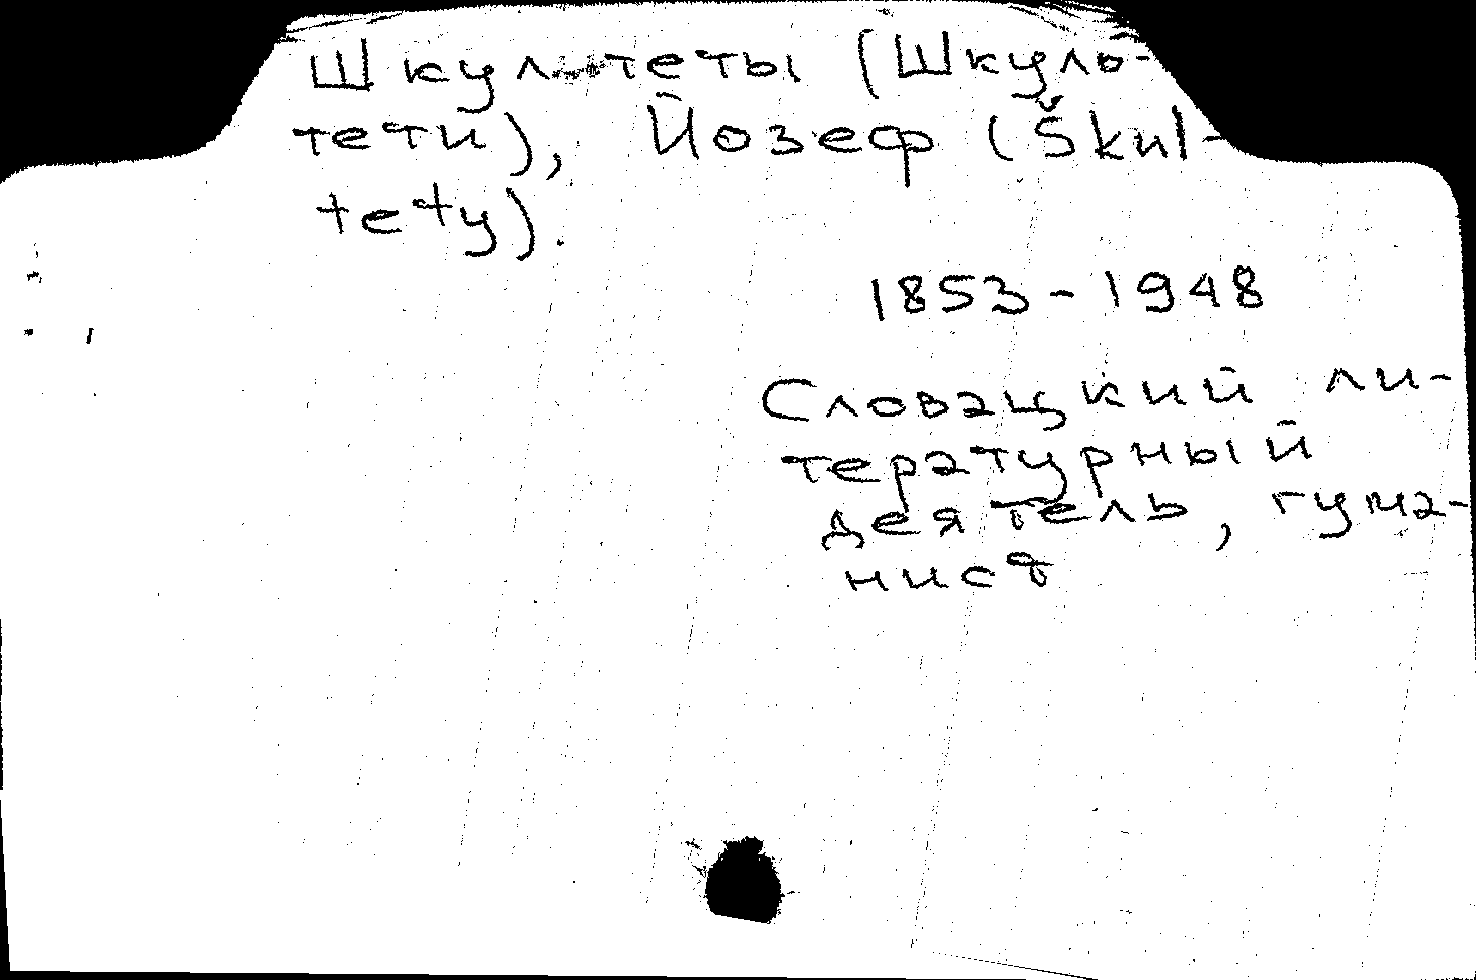 Шкультеты (Шкуль-
тети), Йозеф (Škul-
tety).
1853-1948
Словацкий ли-
тературный
деятель, гума-
нист